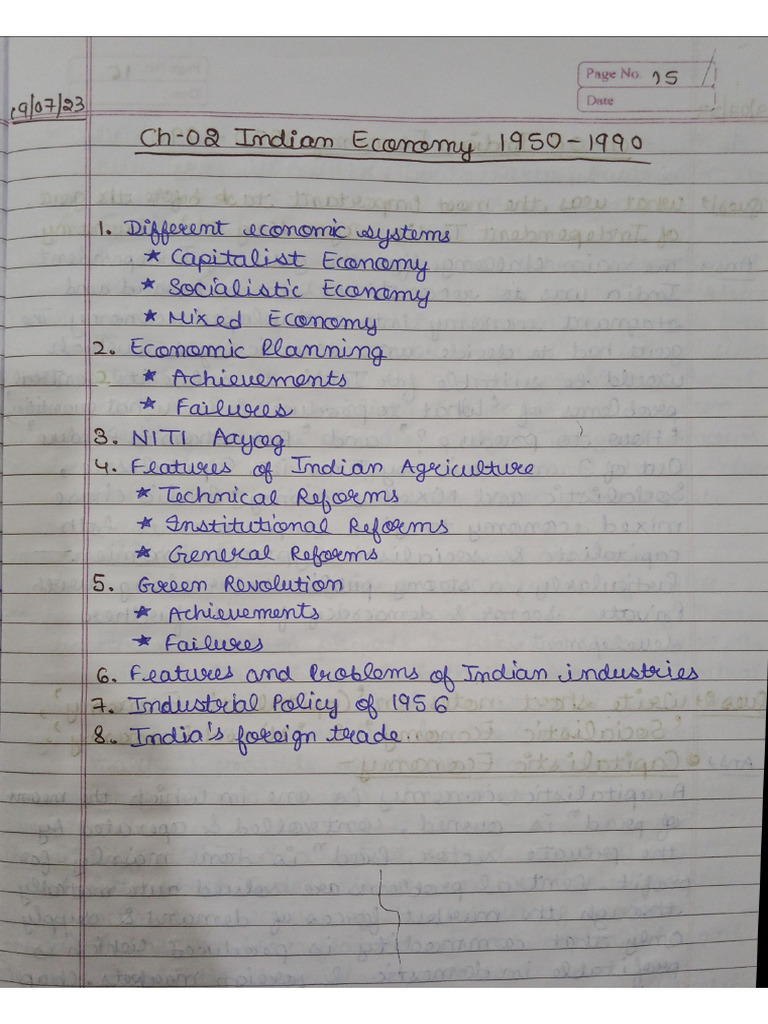 Page No. 15
Date
19/07/23
Ch-02 Indian Economy 1950-1990
1. Different economic systems
* Capitalist Economy
* Socialistic Economy
* Mixed Economy
2. Economic Planning
* Achievements
* Failures
3. NITI Aayog
4. Features of Indian Agriculture
* Technical Reforms
* Institutional Reforms
* General Reforms
5. Green Revolution
* Achievements
* Failures
6. Features and Problems of Indian industries
7. Industrial Policy of 1956
8. India's foreign trade.